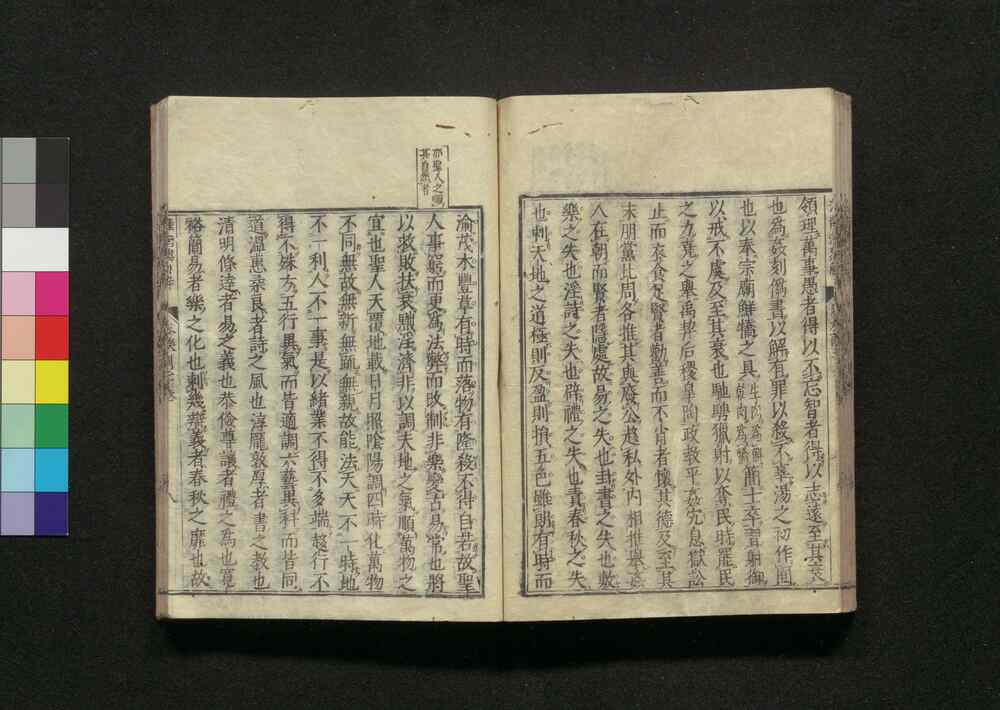 領理萬事愚者得以不忘智者得以志遠至其衰
也為姦刻偽書以解有罪以殺不辜湯之初作囿
也以奉宗廟鮮犞之具簡士卒習射御
以戒不虞及至其衰也馳騁獵射以奪民時罷民
之力堯之舉禹契后稷皐陶政教平姦宄息獄訟
止而衣食足賢者勸善而不肖者懷其德及至其
末朋黨比周各推其與廢公趍私外內相推舉姦
人在朝而賢者隱處故易之失也卦書之失也敷
樂之失也淫詩之失也辟禮之失也責春秋之失
也刺天地之道極則反盈則損五色雖朗有時而
渝茂木豐草有時而落物有隆殺不得自若故聖
人事窮而更為法弊而改制非樂變古易常也將
以救敗扶衰黜淫濟非以調天地之氣順萬物之
宜也聖人天覆地載日月照陰陽調四時化萬物
不同無故無新無疏無親故能法天天不一時地
不一利人不一事是以緒業不得不多端趍行不
得不殊方五行異氣而皆適調六藝異科而皆同
道溫惠柔良者詩之風也淳龐敦厚者書之教也
清明條達者易之義也恭儉尊讓者禮之為也寬
裕簡易者樂之化也刺幾辯義者春秋之靡也故